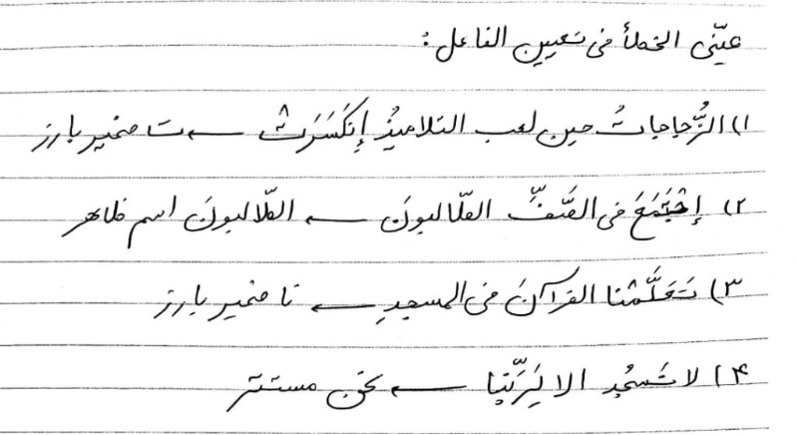 عیّنی الخطأ فی تعیین الفاعل :
۱) الزُّجاجاتُ حین لعب التلامیذُ إنکَسَرَتْ ← ت ضمیر بارز
۲) إجْتَمَعَ فی الصَّفِّ الطّالبونَ ← الطّالبونَ اسم ظاهر
۳) تَعَلَّمْنا القرآنَ فی المسجدِ ← نا ضمیر بارز
۴) لا نَسجُد الا لِرَبِّنا ← نحن مستتر